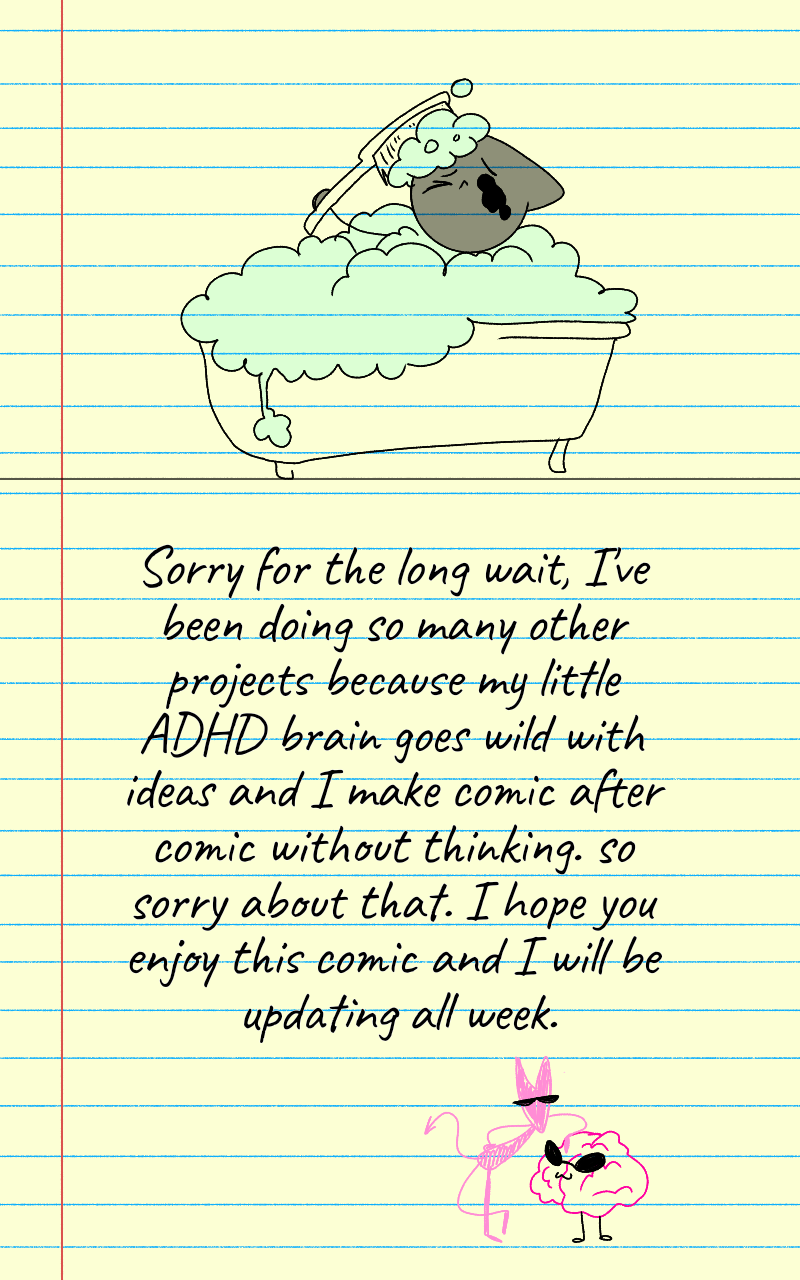 Sorry for the long wait, I've
been doing so many other
projects because my little
ADHD brain goes wild with
ideas and I make comic after
comic without thinking. so
sorry about that. I hope you
enjoy this comic and I will be
updating all week.